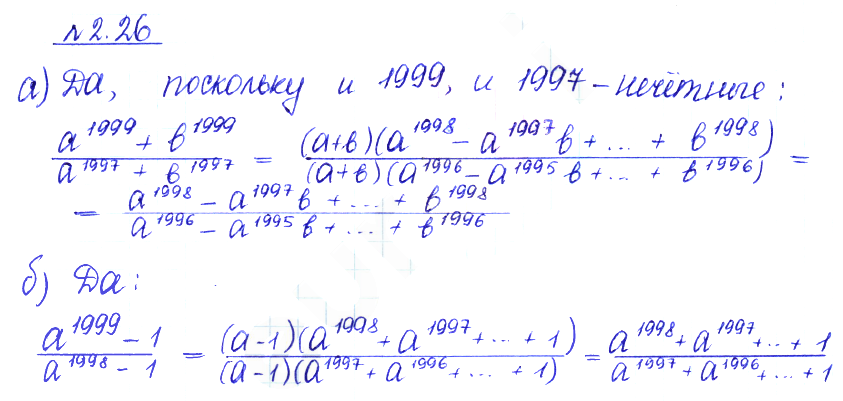 №2.26
а) Да, поскольку и 1999, и 1997 – нечётные:
(a^1999 + b^1999)/(a^1997 + b^1997) = ((a+b)(a^1998 – a^1997 b + ... + b^1998))/((a+b)(a^1996 – a^1995 b + ... + b^1996)) =
= (a^1998 – a^1997 b + ... + b^1998)/(a^1996 – a^1995 b + ... + b^1996)
б) Да:
(a^1999 – 1)/(a^1998 – 1) = ((a-1)(a^1998 + a^1997 + ... + 1))/((a-1)(a^1997 + a^1996 + ... + 1)) = (a^1998 + a^1997 + ... + 1)/(a^1997 + a^1996 + ... + 1)